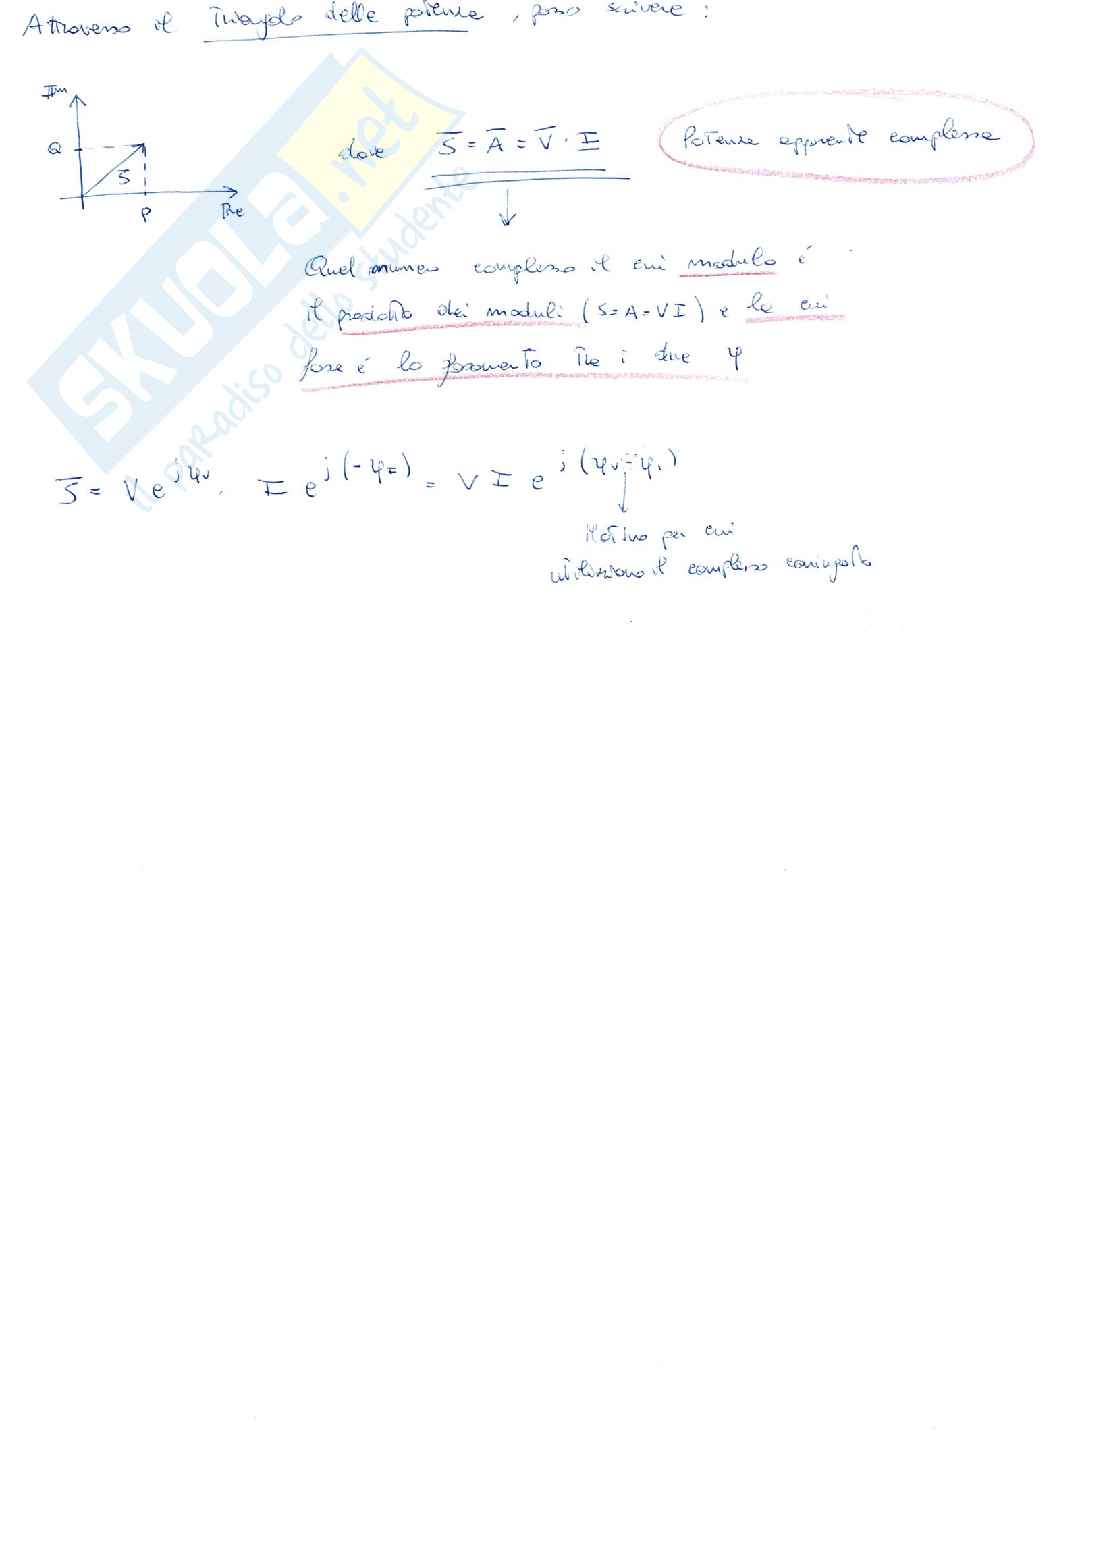 Attraverso il Triangolo delle potenze, posso scrivere:
Im
Q
S
P
Re
dove S̅ = A̅ = V̅ · I̲
Potenza apparente complessa
Quel numero complesso il cui modulo è
il prodotto dei moduli (S=A=VI) e la cui
fase è lo sfasamento tra i due φ
S̅ = V e^jφv · I e^j(-φI) = V I e^j(φv-φi)
Motivo per cui
utilizziamo il complesso coniugato
SKUOLA.net
il paradiso dello studente